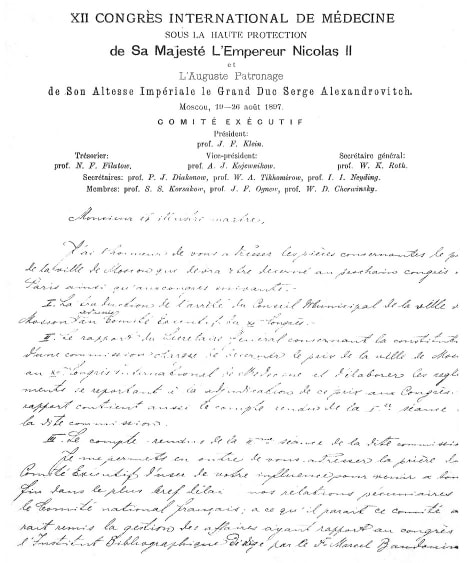 XII CONGRÈS INTERNATIONAL DE MÉDECINE
SOUS LA HAUTE PROTECTION
de Sa Majesté L'Empereur Nicolas II
et
L'Auguste Patronage
de Son Altesse Impériale le Grand Duc Serge Alexandrovitch.
Moscou, 19—26 août 1897.
COMITÉ EXÉCUTIF
Président:
prof. J. F. Klein.
Trésorier: Vice-président: Secrétaire général:
prof. N. F. Filatow. prof. A. J. Kojewnikow. prof. W. K. Roth.
Secrétaires: prof. P. J. Diakonow, prof. W. A. Tikhomirow, prof. I. I. Neyding.
Membres: prof. S. S. Korsakow, prof. J. F. Ognew, prof. W. D. Cherwinsky.
Monsieur et
J'ai l'honneur de vous adresser les pièces concernantes le
de la ville de Moscou que devra être decerné au prochain congrès
Paris ainsi qu'aux congrès suivants.
I. La traduction de l'arrêté du Conseil Municipal de la ville
Moscou Comité Executif du Congrès.
II. Le rapport du Secretaire General concernant la
d'une commission à decerner le prix de la ville de
au Congrès international de Medecine et d'élaborer les
se reportant à la de ce prix aux Congrès
rapport contient aussi le compte rendu de la séance
la dite commission.
III. Le compte-rendu de la séance de la dite
Je me permets en outre de vous adresser la prière
Comité Exécutif d'user de votre influence pour venir à
fin dans le plus bref délai nos relations pécuniaires
le Comité national français; à ce qu'il parait ce comité
rait remis la gestion des affaires ayant rapport au congrès
l'Institut Bibliographique par le Dr Marcel